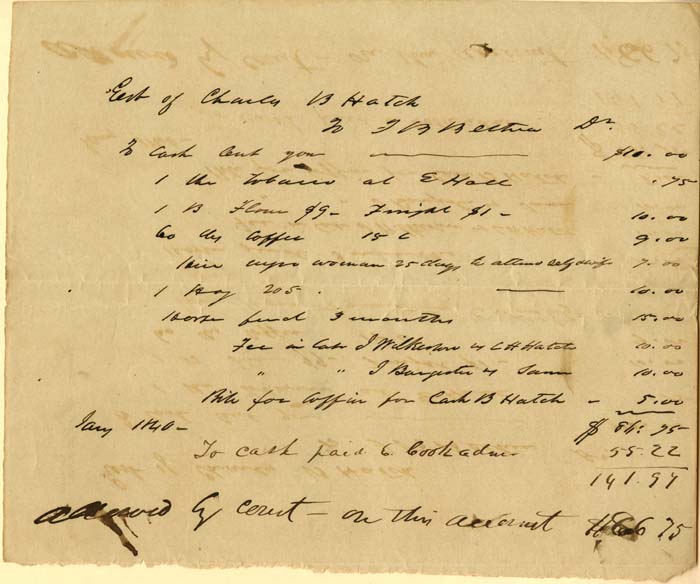 Est of Charles B Hatch
To T B Bethea Dr.
To Cash lent you $10.00
1 lb Tobacco at E Hall .75
1 B Flour $9 – Freight $1 – 10.00
60 lbs Coffee 15 c 9.00
Hire negro woman 25 days to attend 7.00
1 Hog 205 10.00
Horse feed 3 months 15.00
Fee in Case J Wilkerson vs C H Hatch 10.00
" " J Bargester vs Same 10.00
Bill for Coffin for Cash B Hatch – 5.00
Jany 1840 – $ 86.75
To cash paid E Cook admr 55.22
141.97
allowed by court – on this account $86 75